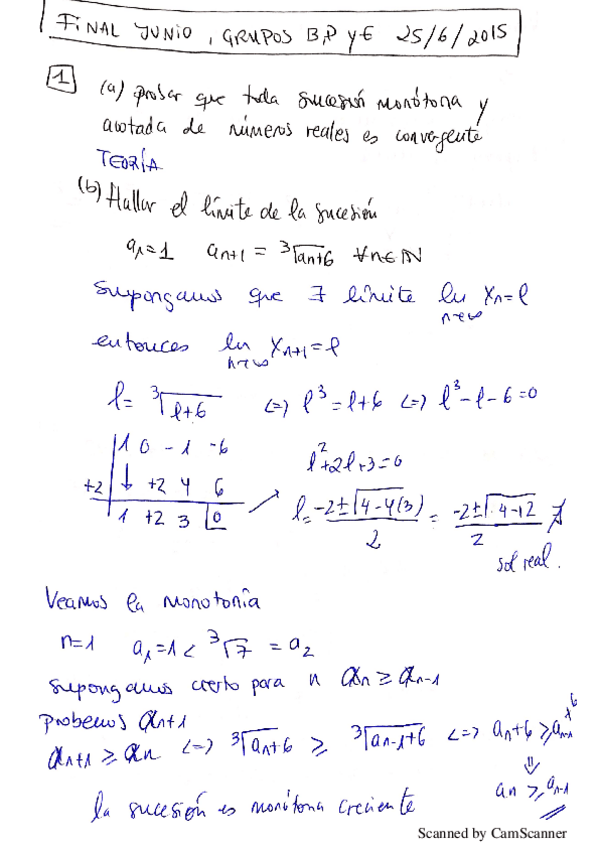 FINAL JUNIO, GRUPOS B,D y E 25/6/2015
1 (a) probar que toda sucesión monótona y
acotada de números reales es convergente
TEORÍA
(b) Hallar el límite de la sucesión
a₁=1 aₙ₊₁ = ³√(aₙ+6) ∀n∈ℕ
Supongamos que ∃ límite lim xₙ=l
n→∞
entonces lim xₙ₊₁=l
n→∞
l= ³√(l+6) <=> l³=l+6 <=> l³-l-6=0
1 0 -1 -6
+2 ↓ +2 4 6
1 +2 3 0
l²+2l+3=0
l= (-2±√(4-4(3)))/2 = (-2±√(4-12))/2 ∄
sol real.
Veamos la monotonía
n=1 a₁=1 < ³√7 = a₂
supongamos cierto para n aₙ ≥ aₙ₋₁
probemos aₙ₊₁
aₙ₊₁ ≥ aₙ <=> ³√(aₙ+6) ≥ ³√(aₙ₋₁+6) <=> aₙ+6 ≥ aₙ₋₁+6
⇓
aₙ ≥ aₙ₋₁
la sucesión es monótona creciente
Scanned by CamScanner